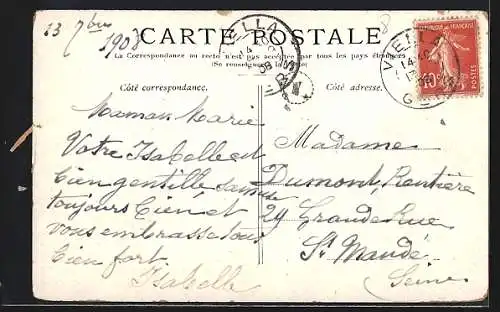 13 7bre
1908
CARTE POSTALE
La Correspondance au recto n'est pas acceptée par tous les pays étrangers
(Se renseigner
Côté correspondance.
Côté adresse.
RÉPUBLIQUE FRANÇAISE
10c
POSTES
Maman Marie
Votre Isabelle est
bien gentille s'amuse
toujours bien et
vous embrasse tous
bien fort
Isabelle
Madame
Dumont, Rentière
29 Grande Rue
St Mandé
Seine